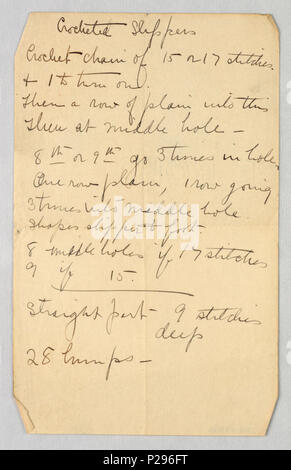 Crocheted Slippers
Crochet chain of 15 or 17 stitches.
& 1 to turn on.
Then a row of plain into this
Then at middle hole –
8th or 9th go 3 times in hole
One row plain, 1 row going
3 times into middle hole.
Shapes slipper to foot
8 middle holes if 17 stitches
9 if 15.
Straight part 9 stitches
deep
28 bumps –
alamy
Image ID: P296FT
www.alamy.com